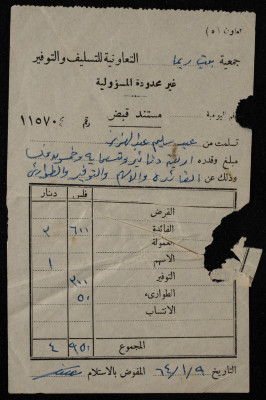 تعاون (٥)
جمعية بيت ريما التعاونية للتسليف والتوفير
غير محدودة المسؤولية
اليومية مستند قبض رقم ١١٥٧٠
تسلمت من عبد سليم عبد العزيز
مبلغ وقدره اربعة دنانير وتسماية وخمسون فلسا
وذلك عن الفائدة والاسهم والتوفير والطوارئ
فلس دينار
القرض
الفائدة ٦٠٠ ٣
العمولة
الأسهم ١
التوفير ٣٠٠
الطوارىء ٥٠
الانتساب
المجموع ٩٥٠ ٤
التاريخ ٦٤/١/٩ المفوض بالاستلام